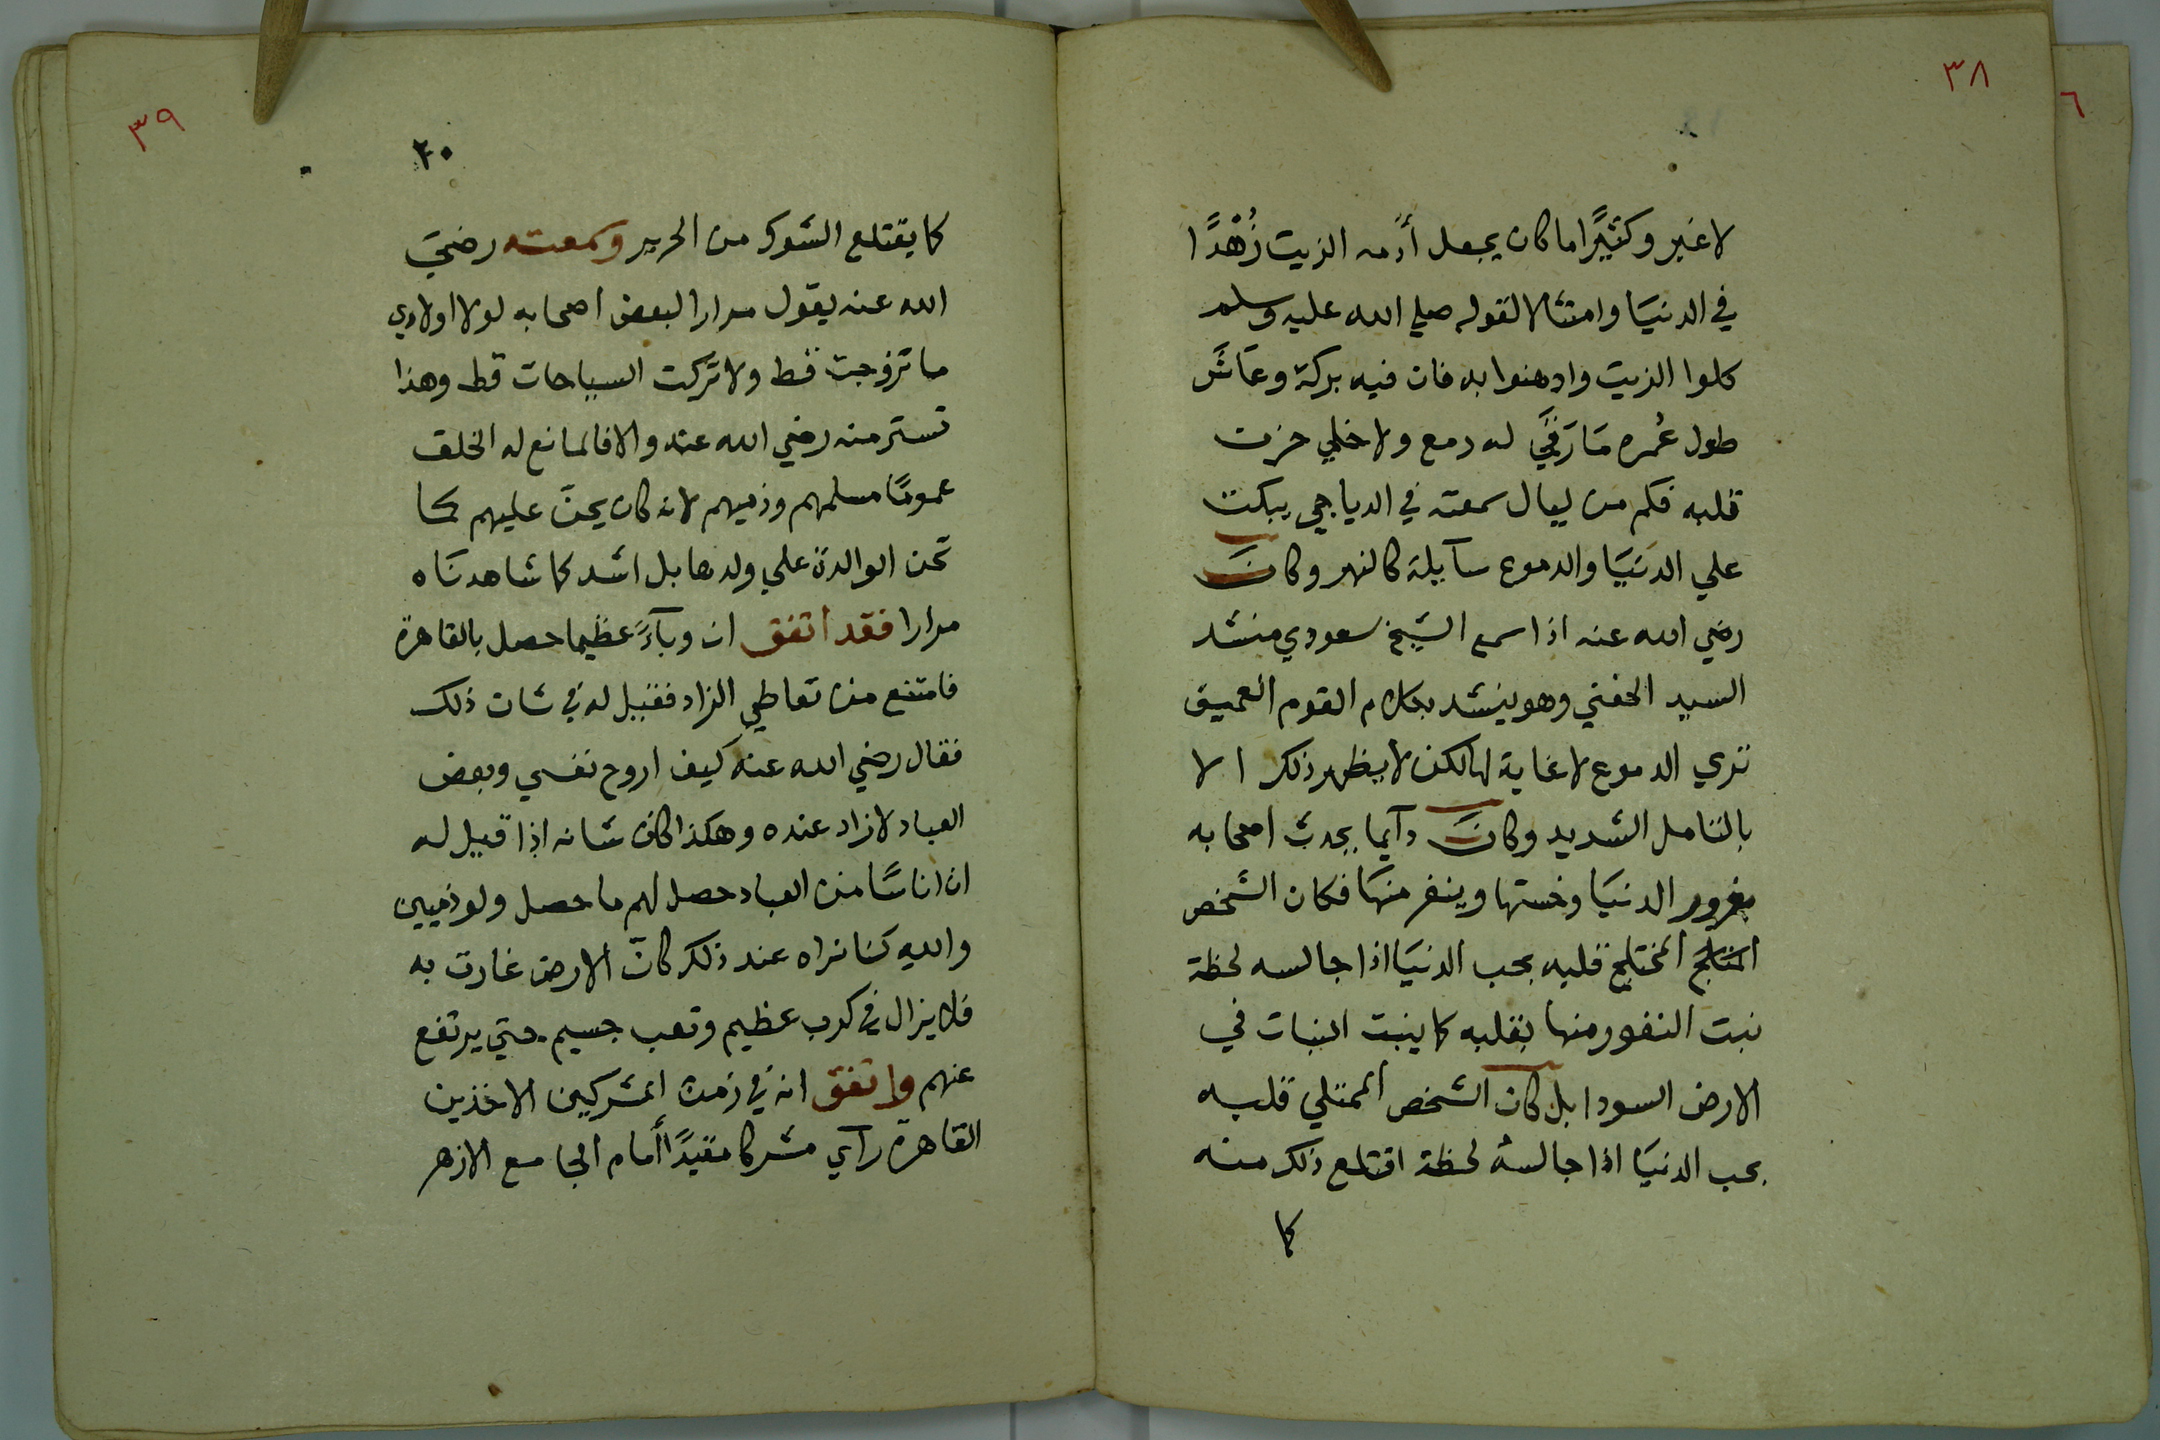 ٣٨
٦
لا غير وكثيرًا ما كان يجعل أدمه الزيت زُهْدًا
في الدنيَا وامتثالا لقوله صلي الله عليه وسلم
كلوا الزيت وادهنوا به فان فيه بركة وعَاشَ
طول عُمره مَا رَقَيَ له دمع ولا خلي حزن
قلبه فكم من ليال سمعته في الدياجي يبكت
علي الدنيَا والدموع سآيلة كالنهر وكانَ
رضي الله عنه اذا سمع الشيخ سعودي منشد
السيد الحفني وهو ينشد بكلام القوم العميق
تري الدموع لا غاية لها لكن لا يظهر ذلك الا
بالتامل الشديد وكانَ دآيما يحدث اصحابه
بغرور الدنيَا وخستها وينفر منهَا فكان الشخص
المختلج قلبه بحب الدنيَا اذا جالسه لحظة
نبت النفور منها بقلبه كما ينبت النبات في
الارض السودا بل كان الشخص الممتلي قلبه
بحب الدنيَا اذا جالسه لحظة اقتلع ذلك منه
كما
٣٩
٢٠
كما يقتلع الشوك من الحرير وسمعته رضيَ
الله عنه يقول مرارا لبعض اصحابه لولا اولادي
ما تزوجت قط ولا تركت السياحات قط وهذا
تستر منه رضي الله عنه والا فالمانع له الخلق
عمومًا مسلمهم وذميهم لانه كان يحنّ عليهم كما
تحن الوالدة علي ولدها بل اشد كما شاهدنَاه
مرارا فقد اتفق ان وبآءً عظيما حصل بالقاهرة
فامتنع من تعاطي الزاد فقيل له في شان ذلك
فقال رضي الله عنه كيف اروح نفسي وبعض
العباد لا زاد عنده وهكذا كان شانه اذا قيل له
ان اناسًا من العباد حصل لهم ما حصل ولو ذميين
والله كنا نراه عند ذلك كانّ الارض غارت به
فلا يزال في كرب عظيم وتعب جسيم حتي يرتفع
عنهم واتفق انه في زمن المشركين الاخذين
القاهرة رآي مشركا مقيدًا أمام الجامع الازهر